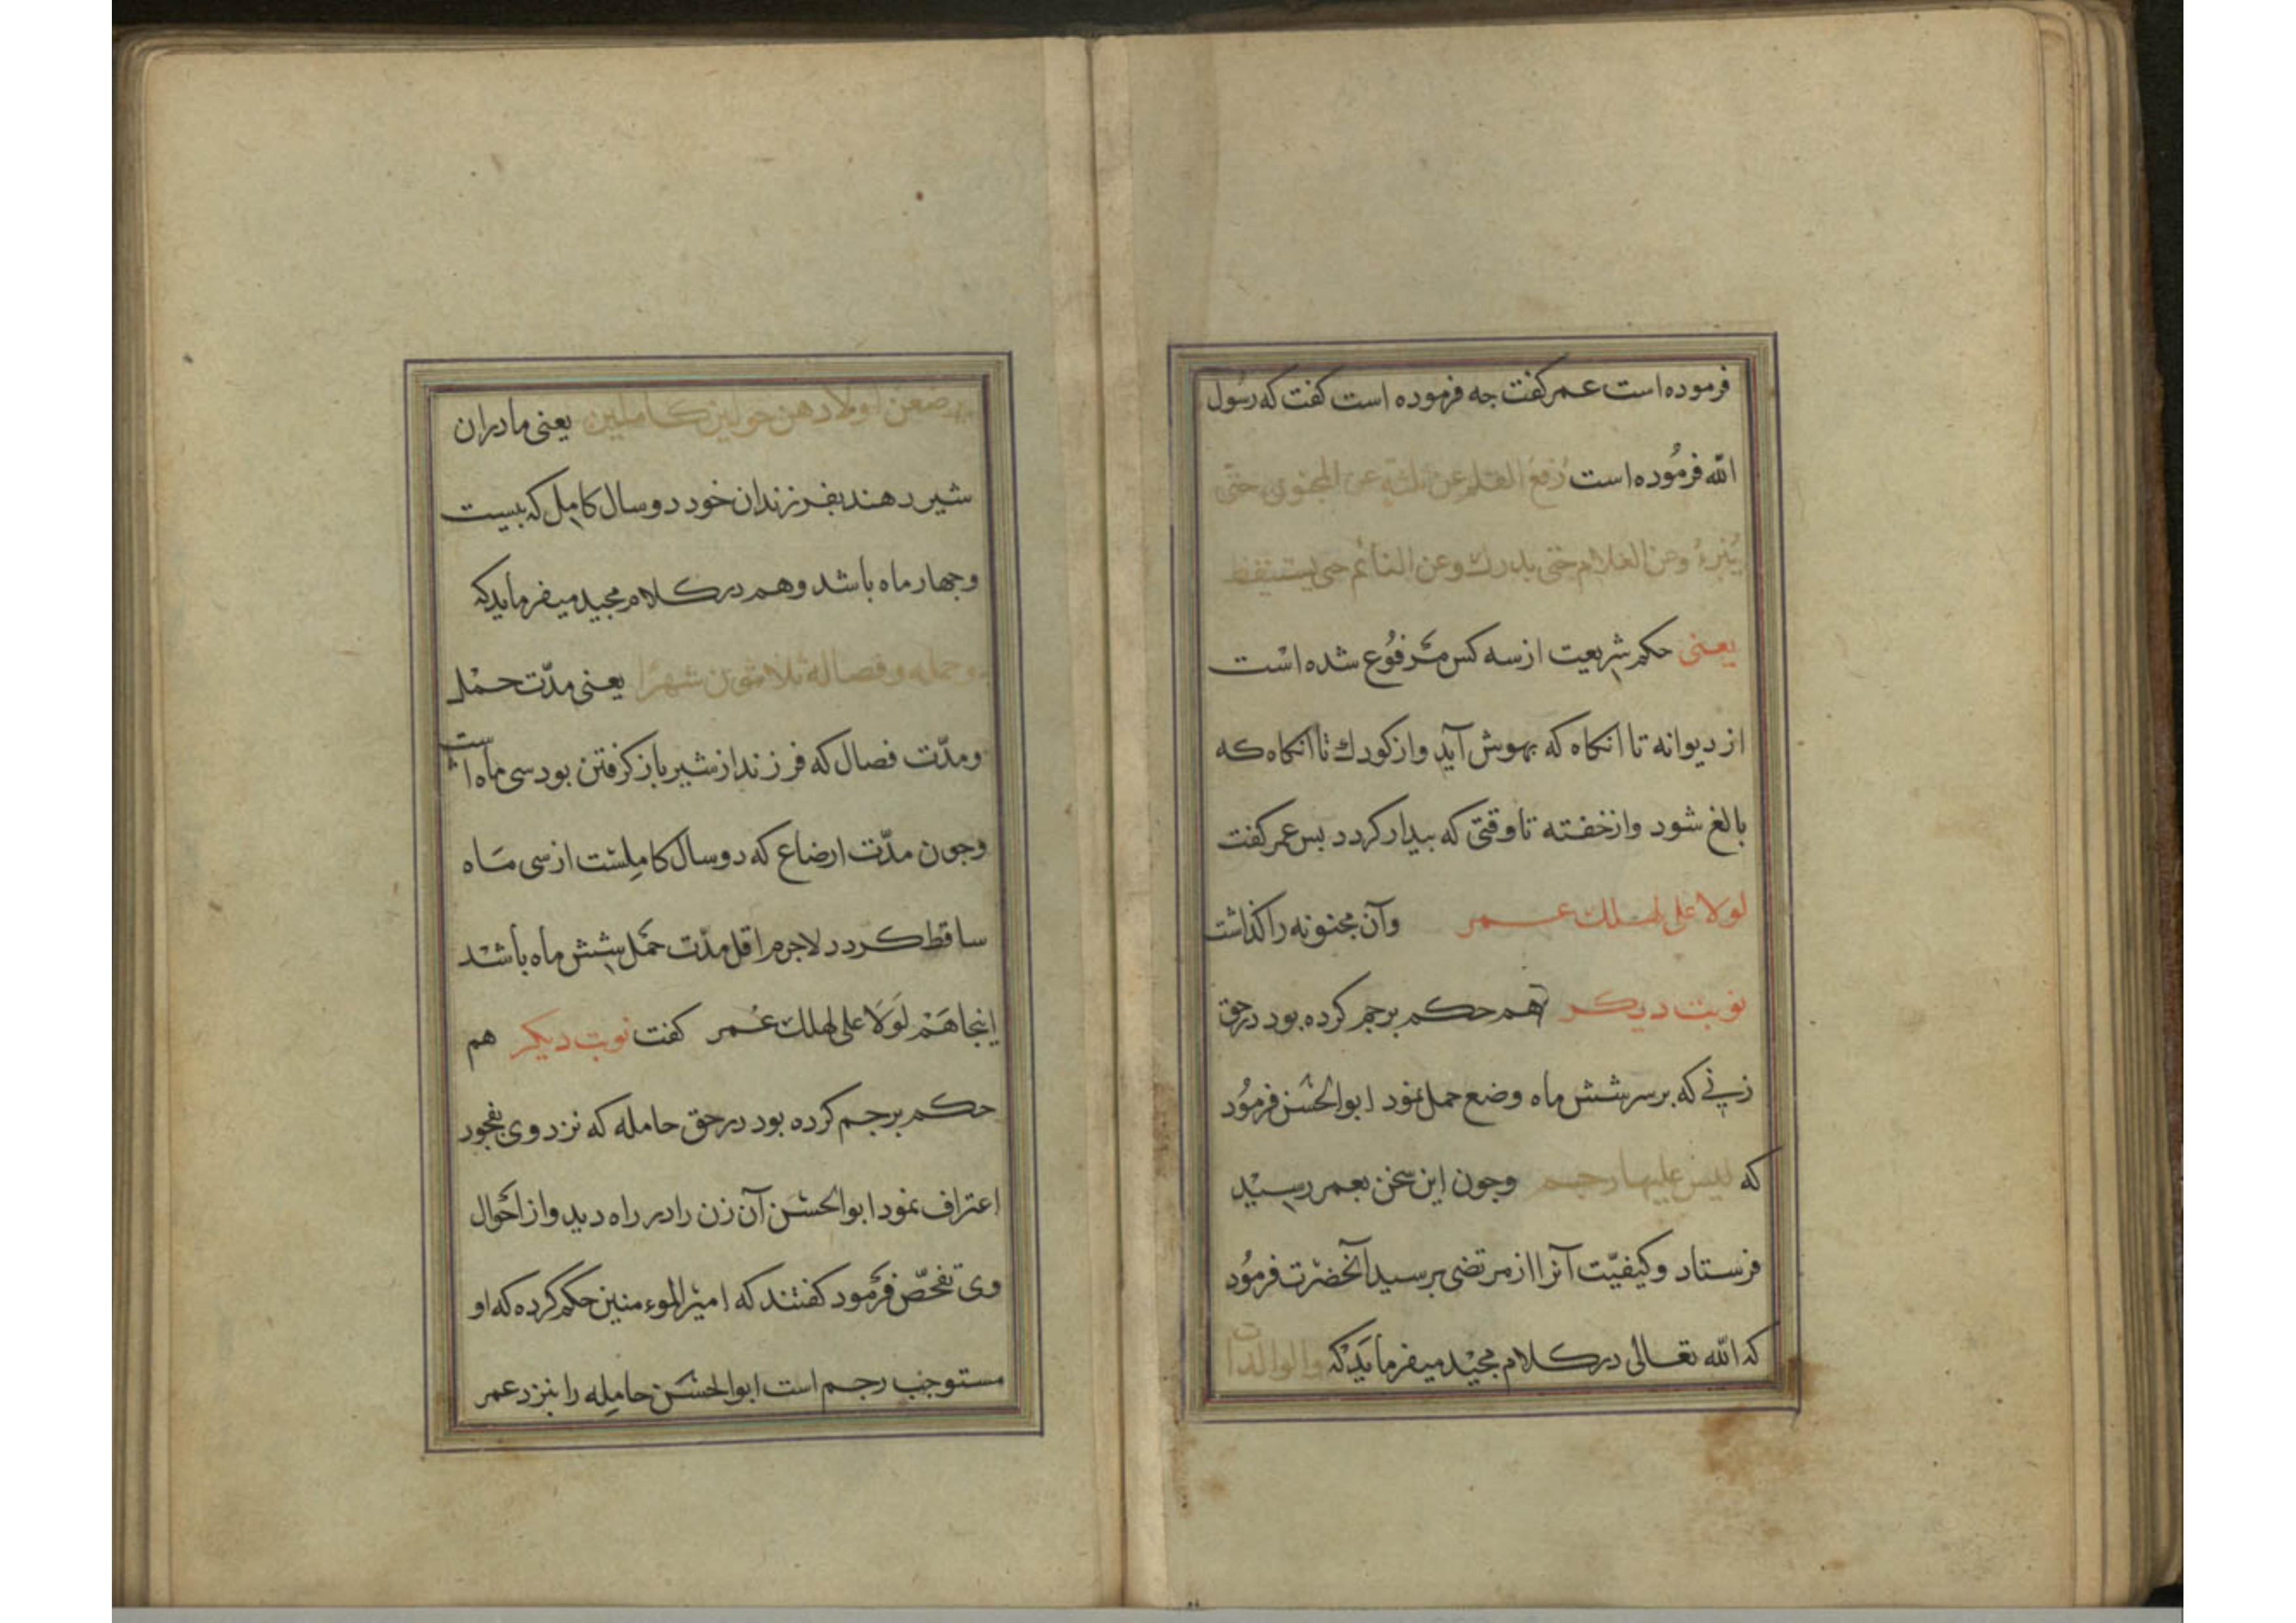 فرموده است عمر كفت جه فرموده است كفت كه رسول
الله فرموده است رفع القلم عن ثلثة عن المجنون حتى
يبرء وعن الغلام حتى يدرك وعن النائم حتى يستيقظ
يعنى حكم شريعت از سه كس مرفوع شده است
از ديوانه تا انكاه كه بهوش آيد واز كودك تا انكاه كه
بالغ شود واز خفته تا وقتى كه بيدار كردد بس عمر كفت
لولا على لهلك عمر وآن مجنونه را كذاشت
نوبت ديكر هم حكم برجم كرده بود در حق
زنى كه بر سر شش ماه وضع حمل نمود ابوالحسن فرمود
كه ليس عليها رجم وجون اين سخن بعمر رسيد
فرستاد وكيفيت آنرا از مرتضى برسيد آنحضرت فرمود
كه الله تعالى در كلام مجيد ميفرمايد كه والوالدات
يرضعن اولادهن حولين كاملين يعنى مادران
شير دهند بفرزندان خود دو سال كامل كه بيست
وجهار ماه باشد وهم در كلام مجيد ميفرمايد كه
وحمله وفصاله ثلاثون شهرا يعنى مدت حمل
ومدت فصال كه فرزند از شير باز كرفتن بود سى ماه است
وجون مدت ارضاع كه دو سال كاملست از سى ماه
ساقط كردد لاجرم اقل مدت حمل شش ماه باشد
اينجا هم لولا على لهلك عمر كفت نوبت ديكر هم
حكم برجم كرده بود در حق حامله كه نزد وى بفجور
اعتراف نمود ابوالحسن آن زن را در راه ديد واز احوال
وى تفحص فرمود كفتند كه امير الموءمنين حكم كرده كه او
مستوجب رجم است ابوالحسن حامله را بنزد عمر